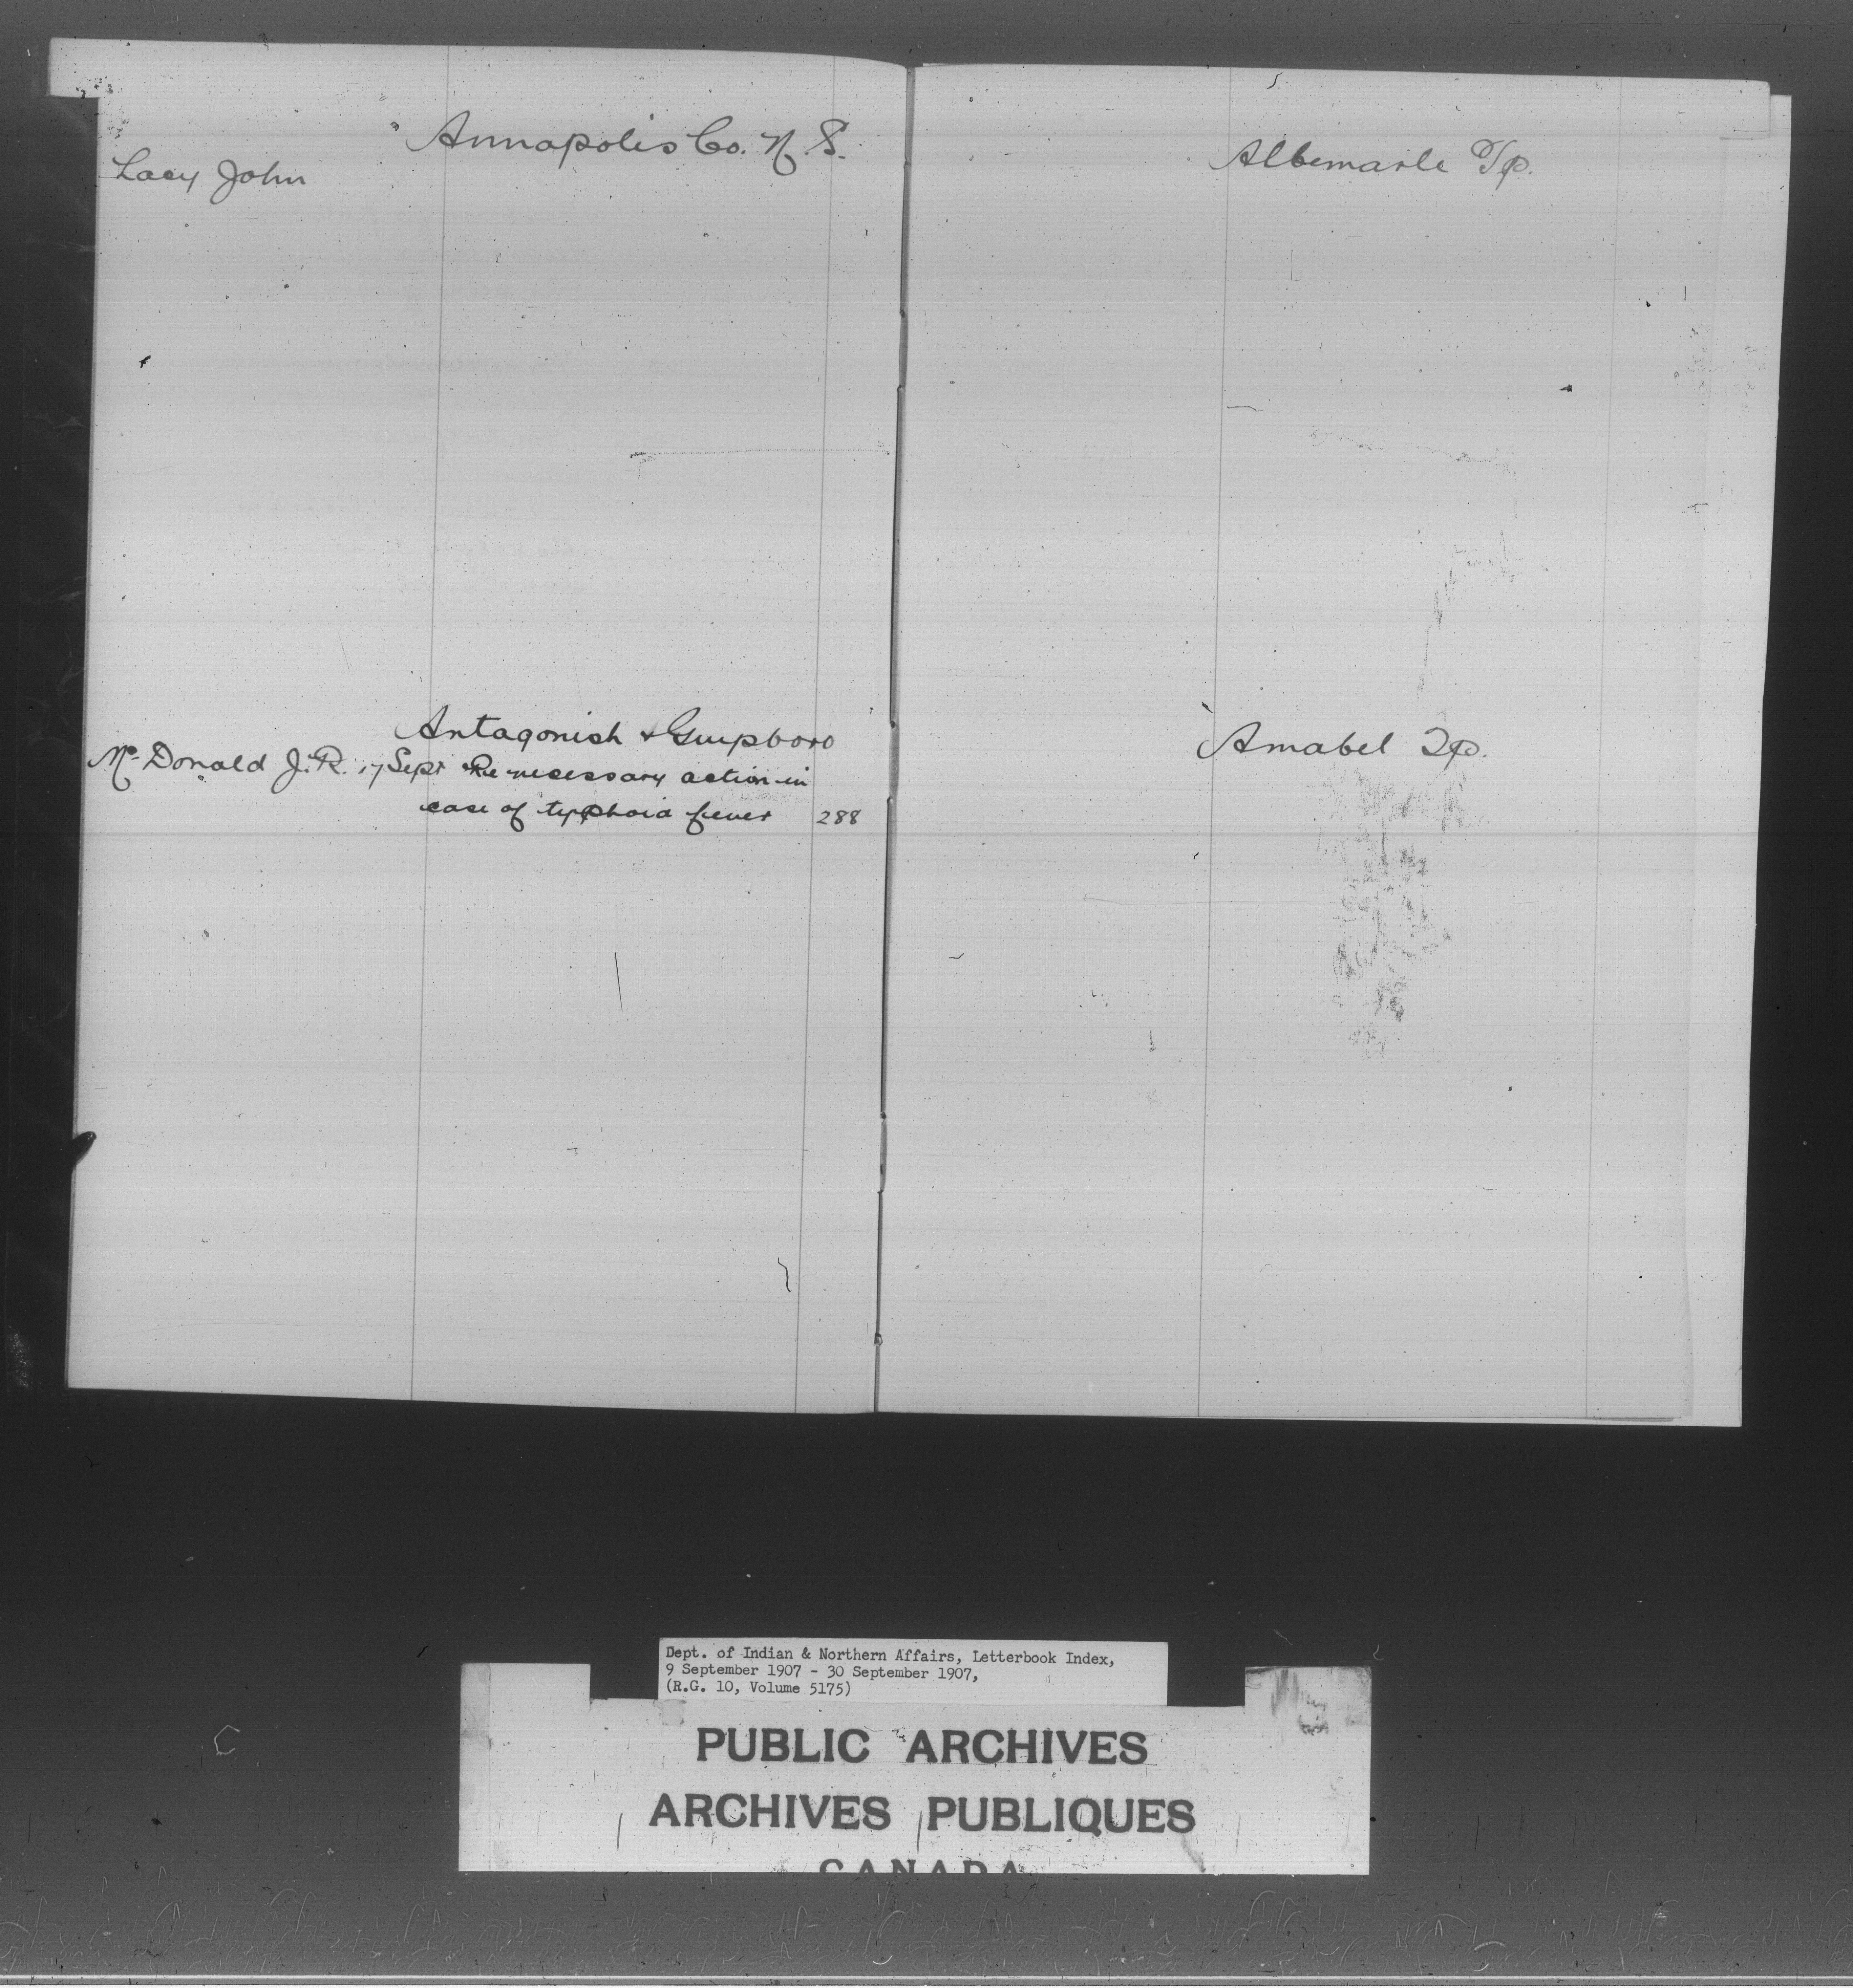 Annapolis Co. N.S.
Lacy John
Antagonish & Guupboro
Mc Donald J.R. 17 Sept Re necessary action in
case of typhoid fever 288
Albemarle Tp.
Amabel Tp.
Dept. of Indian & Northern Affairs, Letterbook Index,
9 September 1907 - 30 September 1907,
(R.G. 10, Volume 5175)
PUBLIC ARCHIVES
ARCHIVES PUBLIQUES
CANADA